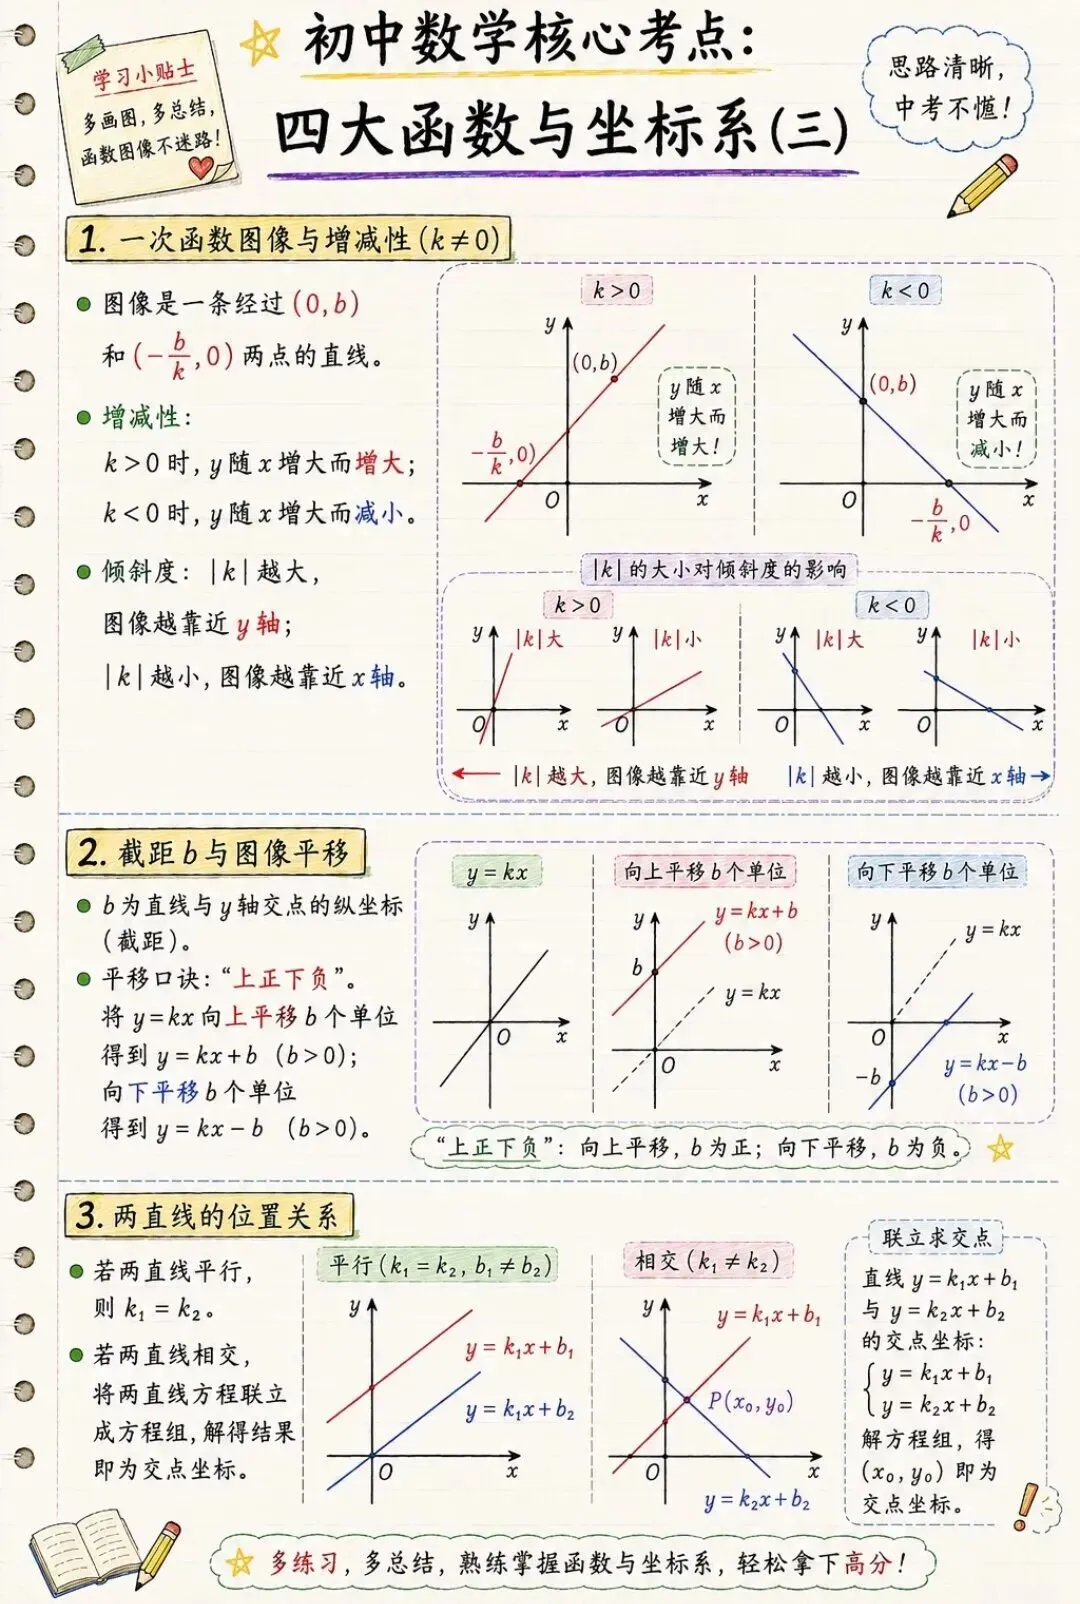 初中数学核心考点:
四大函数与坐标系(三)
学习小贴士
多画图,多总结,
函数图像不迷路!
思路清晰,
中考不慌!
1. 一次函数图像与增减性(k≠0)
图像是一条经过(0,b)
和(-b/k,0)两点的直线。
增减性:
k>0时,y随x增大而增大;
k<0时,y随x增大而减小。
倾斜度:|k|越大,
图像越靠近y轴;
|k|越小,图像越靠近x轴。
k>0
y
(0,b)
y随x
增大而
增大!
-b/k,0)
O
x
k<0
y
(0,b)
y随x
增大而
减小!
O
x
-b/k,0
|k|的大小对倾斜度的影响
k>0
k<0
y
|k|大
O
x
y
|k|小
O
x
y
|k|大
O
x
y
|k|小
O
x
|k|越大,图像越靠近y轴
|k|越小,图像越靠近x轴
2. 截距b与图像平移
b为直线与y轴交点的纵坐标
(截距)。
平移口诀:“上正下负”。
将y=kx向上平移b个单位
得到y=kx+b (b>0);
向下平移b个单位
得到y=kx-b (b>0)。
y=kx
y
O
x
向上平移b个单位
y
y=kx+b
(b>0)
b
y=kx
O
x
向下平移b个单位
y
y=kx
O
x
-b
y=kx-b
(b>0)
“上正下负”:向上平移,b为正;向下平移,b为负。
3. 两直线的位置关系
若两直线平行,
则k₁=k₂。
若两直线相交,
将两直线方程联立
成方程组,解得结果
即为交点坐标。
平行(k₁=k₂, b₁≠b₂)
y
y=k₁x+b₁
y=k₁x+b₂
O
x
相交(k₁≠k₂)
y
y=k₁x+b₁
P(x₀,y₀)
O
x
y=k₂x+b₂
联立求交点
直线y=k₁x+b₁
与y=k₂x+b₂
的交点坐标:
{y=k₁x+b₁
y=k₂x+b₂
解方程组,得
(x₀,y₀)即为
交点坐标。
!
多练习,多总结,熟练掌握函数与坐标系,轻松拿下高分!